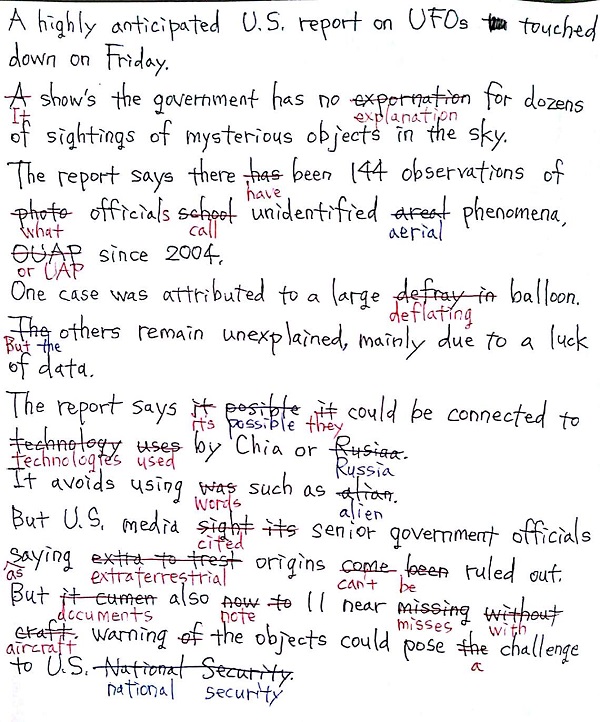 A highly anticipated U.S. report on UFOs touched
down on Friday.
A show's the government has no expornation for dozens
It explanation
of sightings of mysterious objects in the sky.
The report says there has been 144 observations of
have
photo officials school unidentified areal phenomena,
what call aerial
OUAP since 2004.
or UAP
One case was attributed to a large defray in balloon.
deflating
The others remain unexplained, mainly due to a luck
But the
of data.
The report says it posible it could be connected to
it's possible they
technology uses by Chia or Rusiaa.
technologies used Russia
It avoids using was such as alian.
words alien
But U.S. media sight its senior government officials
cited
saying extra to trest origins come been ruled out.
as extraterrestrial can't be
But it cumen also now to 11 near missing without
documents note misses with
craft. warning of the objects could pose the challenge
aircraft a
to U.S. National Security.
national security